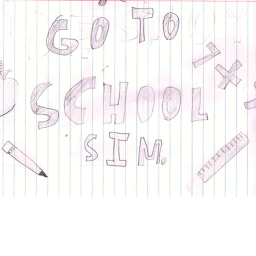 GO TO
SCHOOL
SIM.